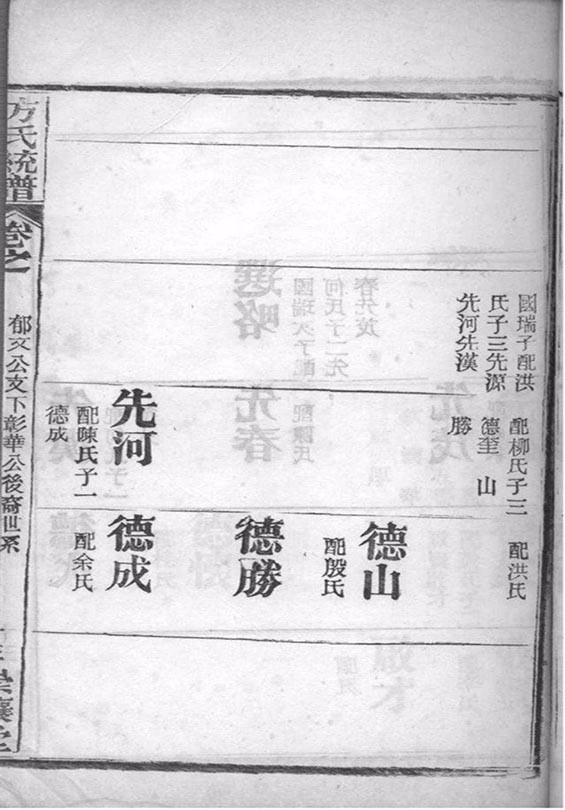 國瑞子配洪
氏子三先源
先河先漢
配柳氏子三
德奎 山
勝
先河
配陳氏子一
德成
配洪氏
德山
配殷氏
德勝
德成
配余氏
方氏統譜
卷之
郁文公支下彰華公後裔世系